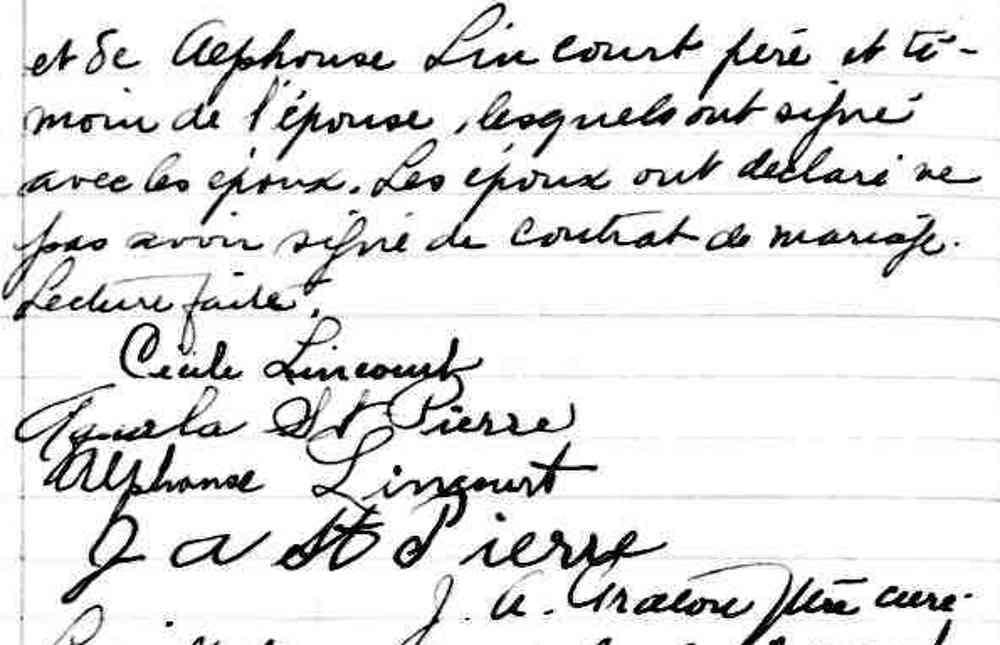 et de Alphonse Lincourt père et té-
moin de l'épouse, lesquels ont signé
avec les époux. Les époux ont déclaré ne
pas avoir signé de contrat de mariage.
Lecture faite.
Cécile Lincourt
St Pierre
Alphonse Lincourt
J A St Pierre
J. A. ptre curé.